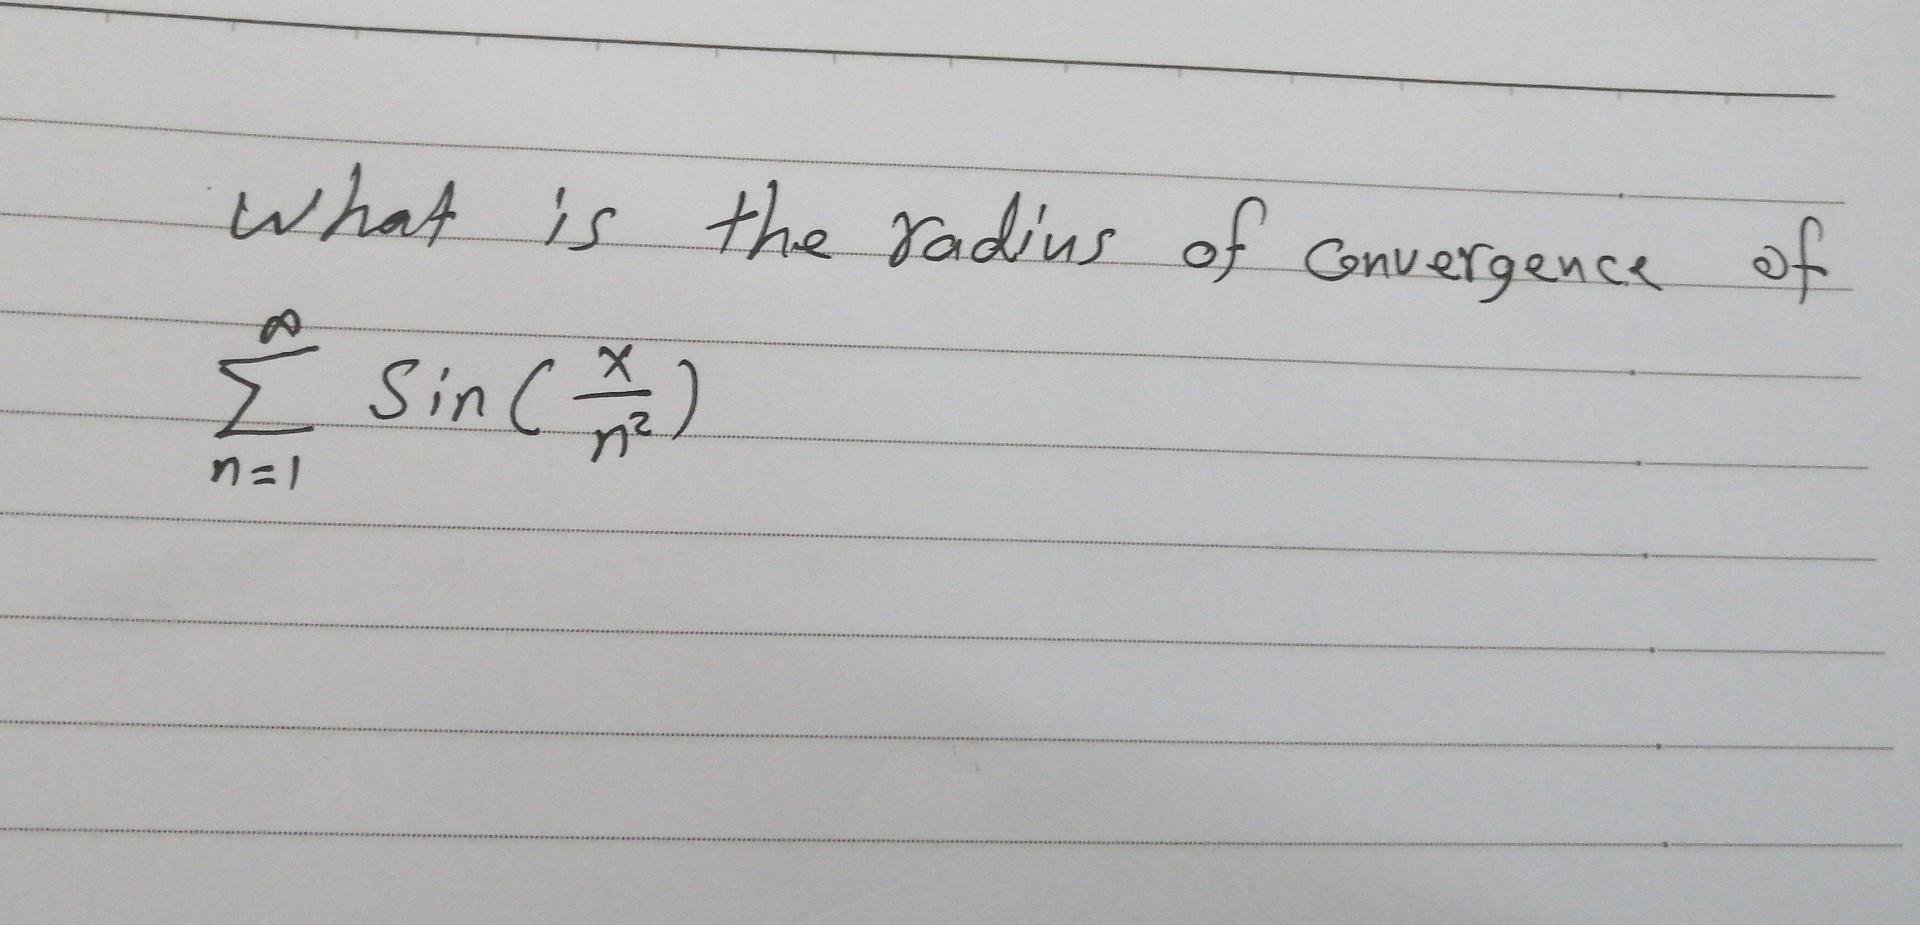 What is the radius of convergence of
∞
∑ Sin(x/n²)
n=1